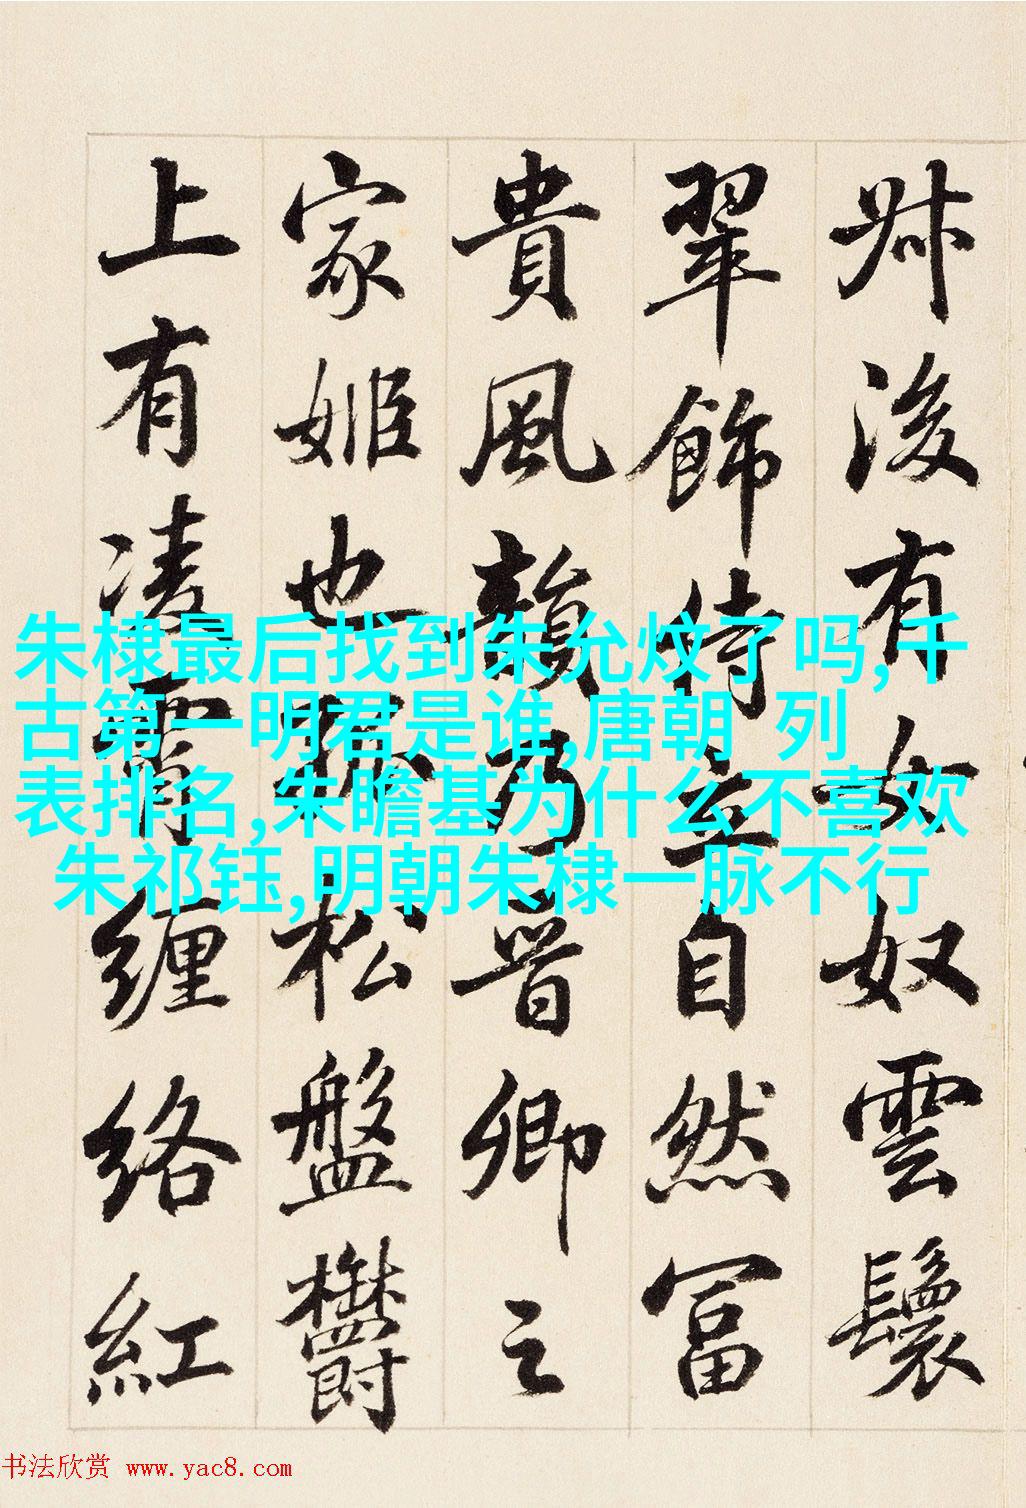 叔後有女奴雲鬟
翠飾侍立自然富
貴風韻乃晉卿之
家姬也孤松盤欝
上有凌霄纏絡紅
朱棣最后找到朱允炆了吗,千
古第一明君是谁,唐朝 列
表排名,朱瞻基为什么不喜欢
朱祁钰,明朝朱棣一脉不行
书法欣赏 www.yac8.com